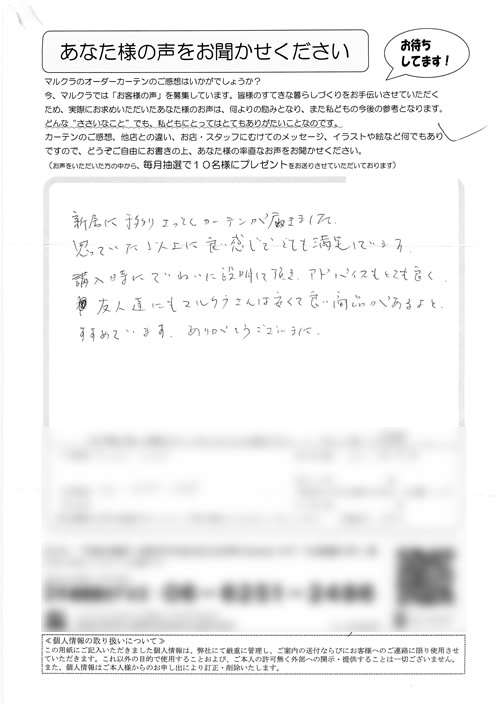 あなた様の声をお聞かせください
お待ち
してます!
マルクラのオーダーカーテンのご感想はいかがでしょうか?
今、マルクラでは「お客様の声」を募集しています。皆様のすてきな暮らしづくりをお手伝いさせていただく
ため、実際にお求めいただいたあなた様のお声は、何よりの励みとなり、また私どもの今後の参考となります。
どんな“ささいなこと”でも、私どもにとってはとてもありがたいことなのです。
カーテンのご感想、他店との違い、お店・スタッフにむけてのメッセージ、イラストや絵など何でもあり
ですので、どうぞご自由にお書きの上、あなた様の率直なお声をお聞かせください。
(お声をいただいた方の中から、毎月抽選で10名様にプレゼントをお送りさせていただいております)
新居に ってカーテンが届きました。
思っていた以上に良い感じでとても満足しています。
購入時にていねいに説明して頂き、アドバイスもとても良く、
友人達にもマルクラさんは安くて良い商品があるよと、
すすめています。ありがとうございました。
06-6251-2486
≪個人情報の取り扱いについて≫
この用紙にご記入いただきました個人情報は、弊社にて厳重に管理し、ご案内の送付ならびにお客様へのご連絡に限り使用させ
ていただきます。これ以外の目的で使用することおよび、ご本人の許可無く外部への開示・提供することは一切ございません。
また、個人情報はご本人様からのお申し出により訂正・削除いたします。